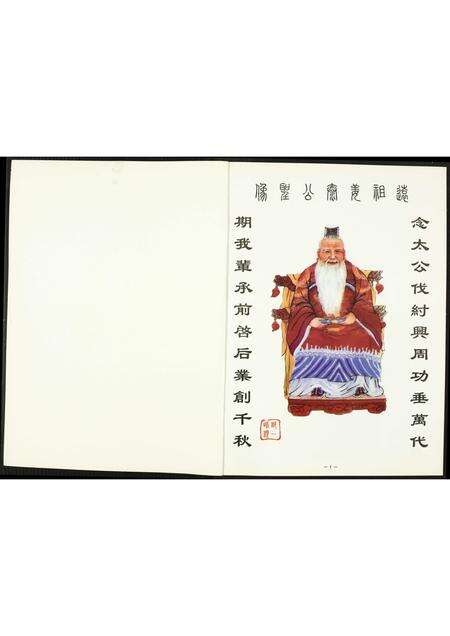 遠祖姜齊公聖像
念太公伐紂興周功垂萬代
期我輩承前啓后業創千秋
- 1 -